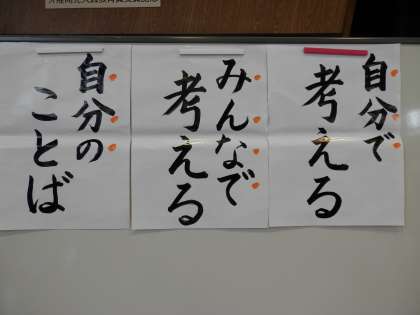 自分で
考える
みんなで
考える
自分の
ことば